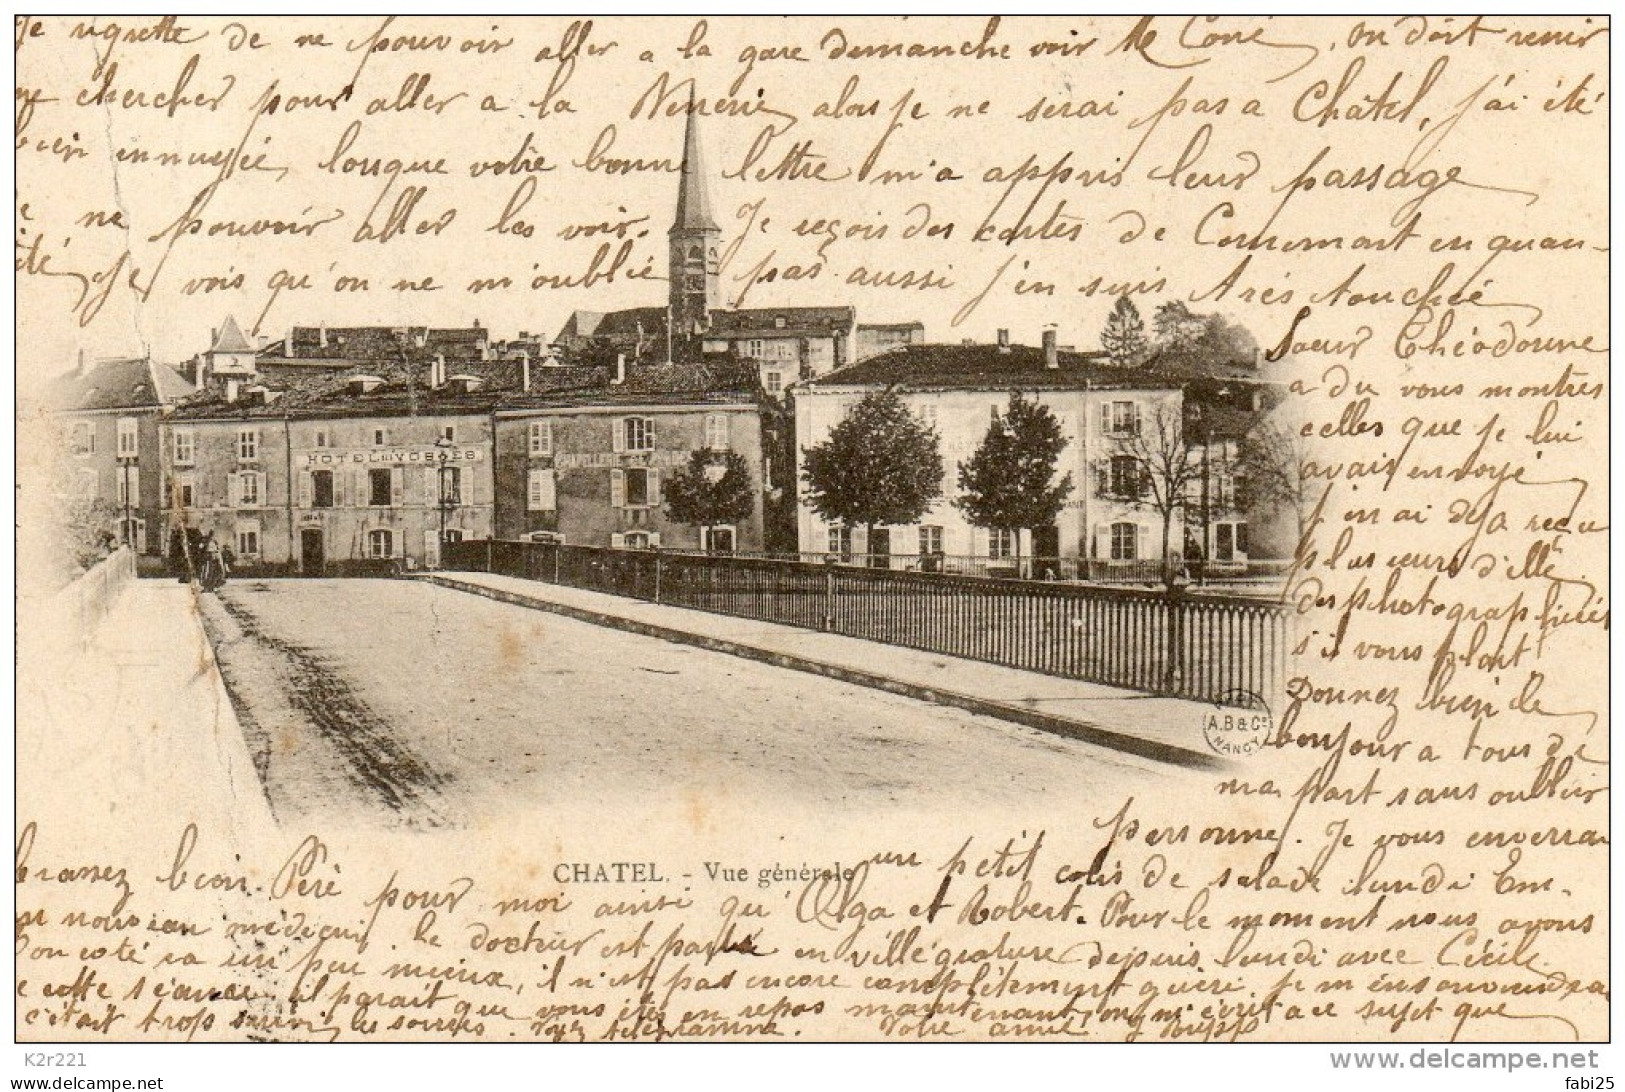 Je regrette de ne pouvoir aller a la gare demanche voir Me Coné, on doit venir
me chercher pour aller a la Verrerie, alors je ne serai pas a Châtel, j'ai été
bien ennuyée, lorsque votre bonne lettre m'a appris leur passage
de ne pouvoir aller les voir. Je reçois des cartes de Cornimont en quan-
tité, je vois qu'on ne m'oublié pas aussi j'en suis très touchée
Soeur Théodorine
a du vous montrer
celles que je lui
avais envoyé
j'en ai déja reçu
plusieurs d'elle
des photographiées
s'il vous plait
Donnez bien le
bonjour a tous de
ma part sans oublier
personne. Je vous enverrai
un petit colis de salade lundi Em-
brassez bien Père pour moi ainsi qu'Olga et Robert. Pour le moment nous avons
un nouveau médecin. Le docteur est partie en villégiature depuis lundi avec Cécile.
Son coté va un peu mieux, il n'est pas encore complètement guéri, je m'en souviendrai
de cette séance. il parait que vous êtes en repos maintenant, on m'écrit a ce sujet que
c'était trop suivi, les soirées. télégramme. Votre amie
HOTEL DES VOSGES
A.B & Cie
NANCY
CHATEL. - Vue générale
K2r221
www.delcampe.net
fabi25